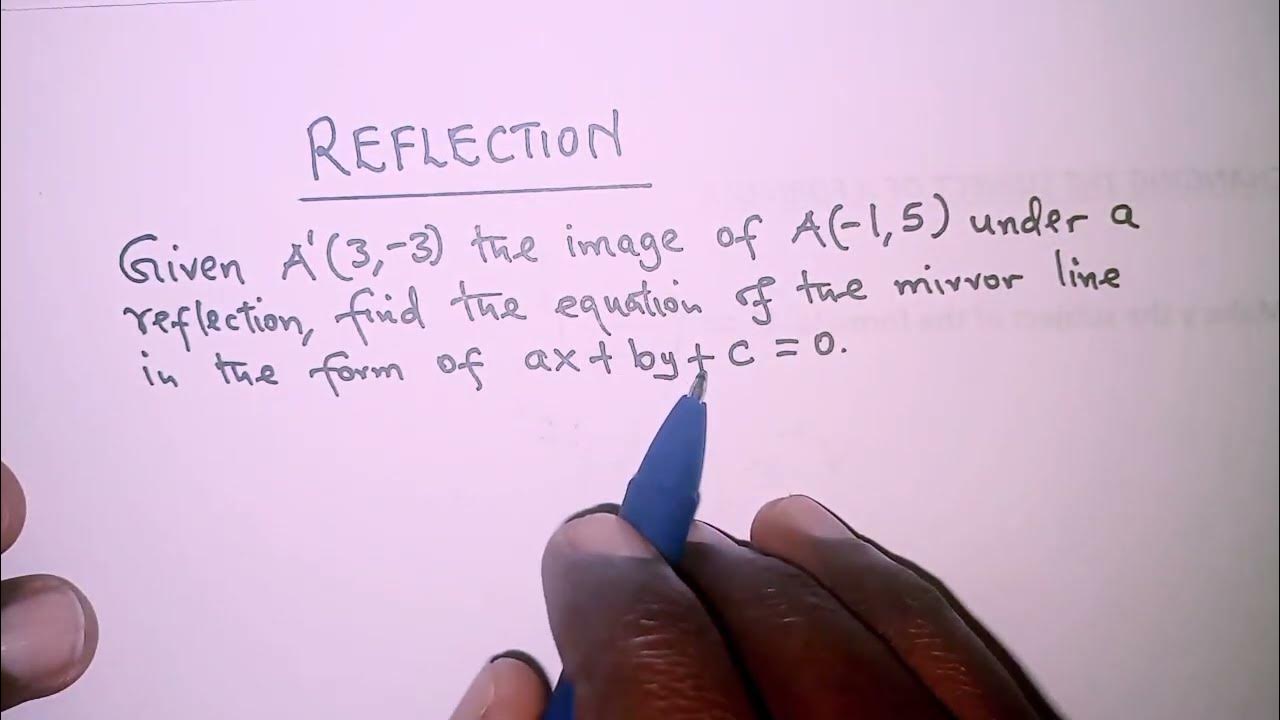 REFLECTION
Given A'(3,-3) the image of A(-1,5) under a
reflection, find the equation of the mirror line
in the form of ax + by + c = 0.